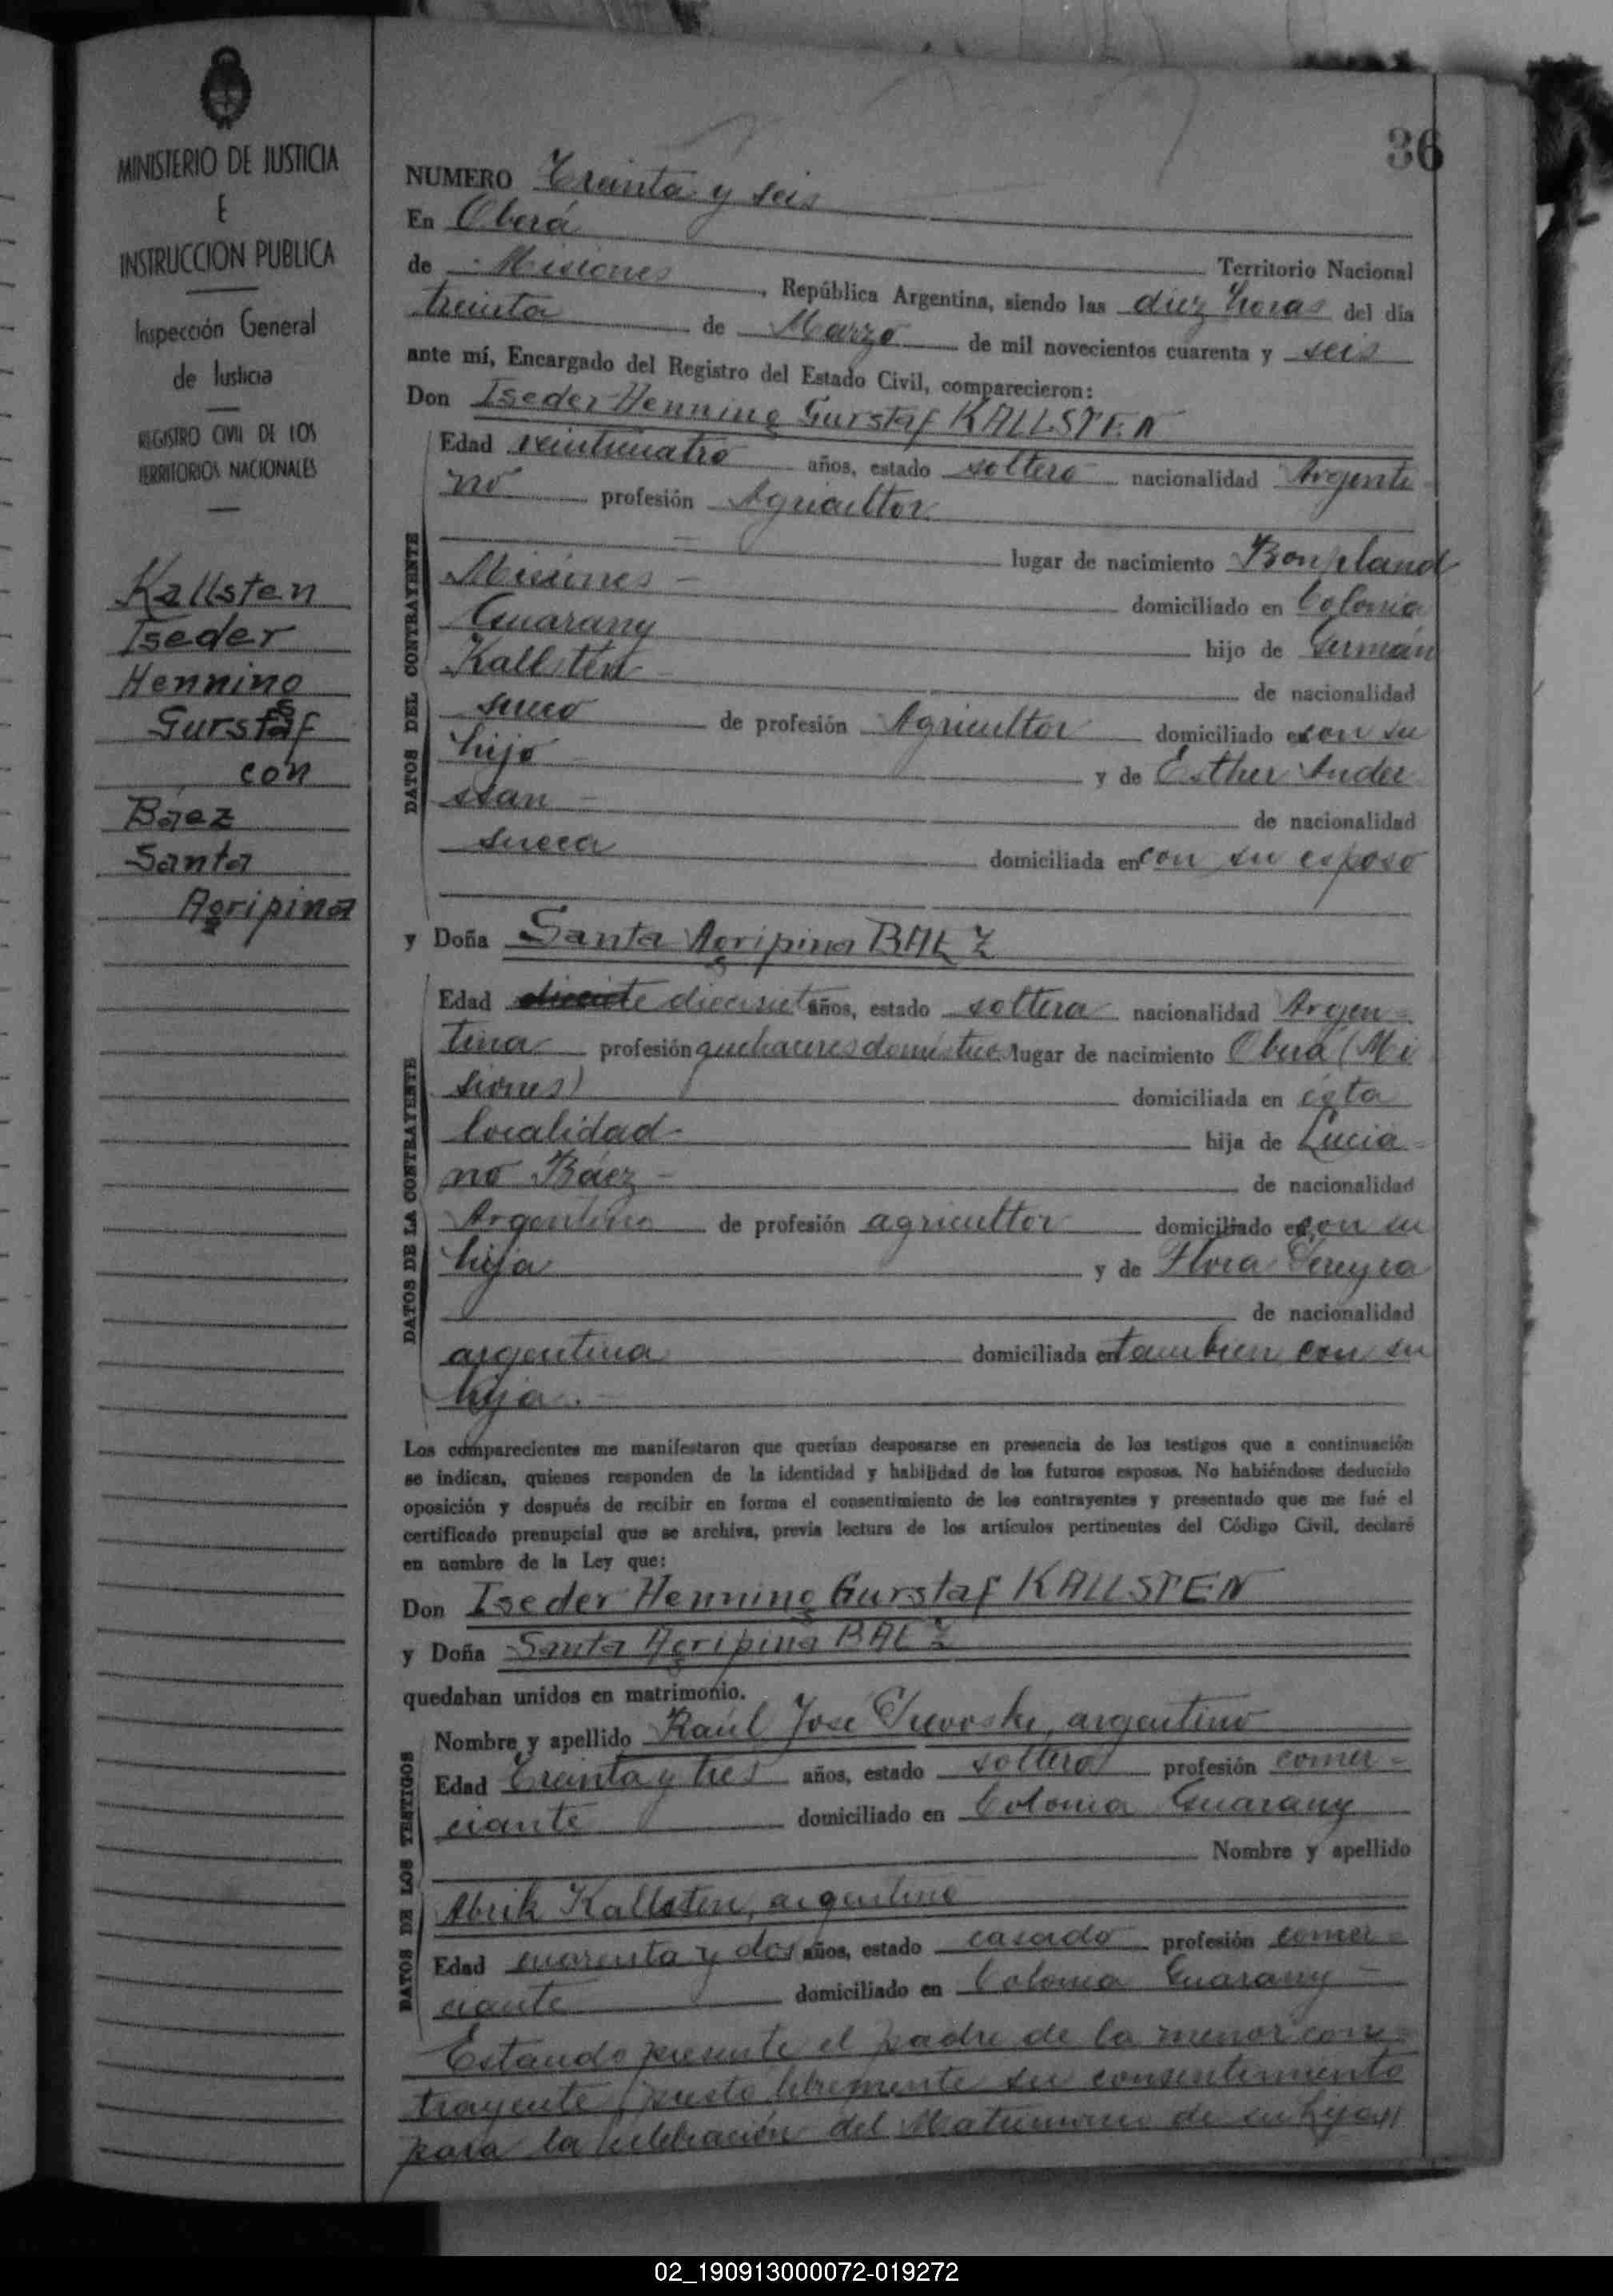 MINISTERIO DE JUSTICIA
E
INSTRUCCION PUBLICA
Inspección General
de Justicia
REGISTRO CIVIL DE LOS
TERRITORIOS NACIONALES
Kallsten
Iseder
Henning
Gurstaf
con
Báez
Santa
Agripina
36
NUMERO Treinta y seis
En Oberá
Territorio Nacional
de Misiones, República Argentina, siendo las diez horas del día
treinta de Marzo de mil novecientos cuarenta y seis
ante mí, Encargado del Registro del Estado Civil, comparecieron:
Don Iseder Henning Gurstaf KALLSTEN
DATOS DEL CONTRAYENTE
Edad veinticuatro años, estado soltero nacionalidad Argenti-
no profesión Agricultor
lugar de nacimiento Bonpland
Misiones - domiciliado en Colonia
Guarany hijo de Germán
Kallsten de nacionalidad
sueco de profesión Agricultor domiciliado en con su
hijo - y de Esther Ander
ssan - de nacionalidad
sueca domiciliada en con su esposo
y Doña Santa Agripina BAEZ
DATOS DE LA CONTRAYENTE
Edad diecisiete años, estado soltera nacionalidad Argen-
tina profesión quehaceres domésticos lugar de nacimiento Oberá (Mi
siones) domiciliada en ésta
localidad - hija de Lucia-
no Báez - de nacionalidad
Argentino de profesión agricultor domiciliado en con su
hija y de Flora Pereyra
de nacionalidad
argentina domiciliada en tambien con su
hija. -
Los comparecientes me manifestaron que querían desposarse en presencia de los testigos que a continuación
se indican, quienes responden de la identidad y habilidad de los futuros esposos. No habiéndose deducido
oposición y después de recibir en forma el consentimiento de los contrayentes y presentado que me fué el
certificado prenupcial que se archiva, previa lectura de los artículos pertinentes del Código Civil, declaré
en nombre de la Ley que:
Don Iseder Henning Gurstaf KALLSTEN
y Doña Santa Agripina BAEZ
quedaban unidos en matrimonio.
DATOS DE LOS TESTIGOS
Nombre y apellido Raúl José argentino
Edad Treinta y tres años, estado soltero profesión comer-
ciante domiciliado en Colonia Guarany
Nombre y apellido
Kallsten, argentino
Edad cuarenta y dos años, estado casado profesión comer-
ciante domiciliado en Colonia Guarany -
Estando presente el padre de la menor con-
trayente, presto libremente su consentimiento
para la celebración del Matrimonio de su hija
02_190913000072-019272